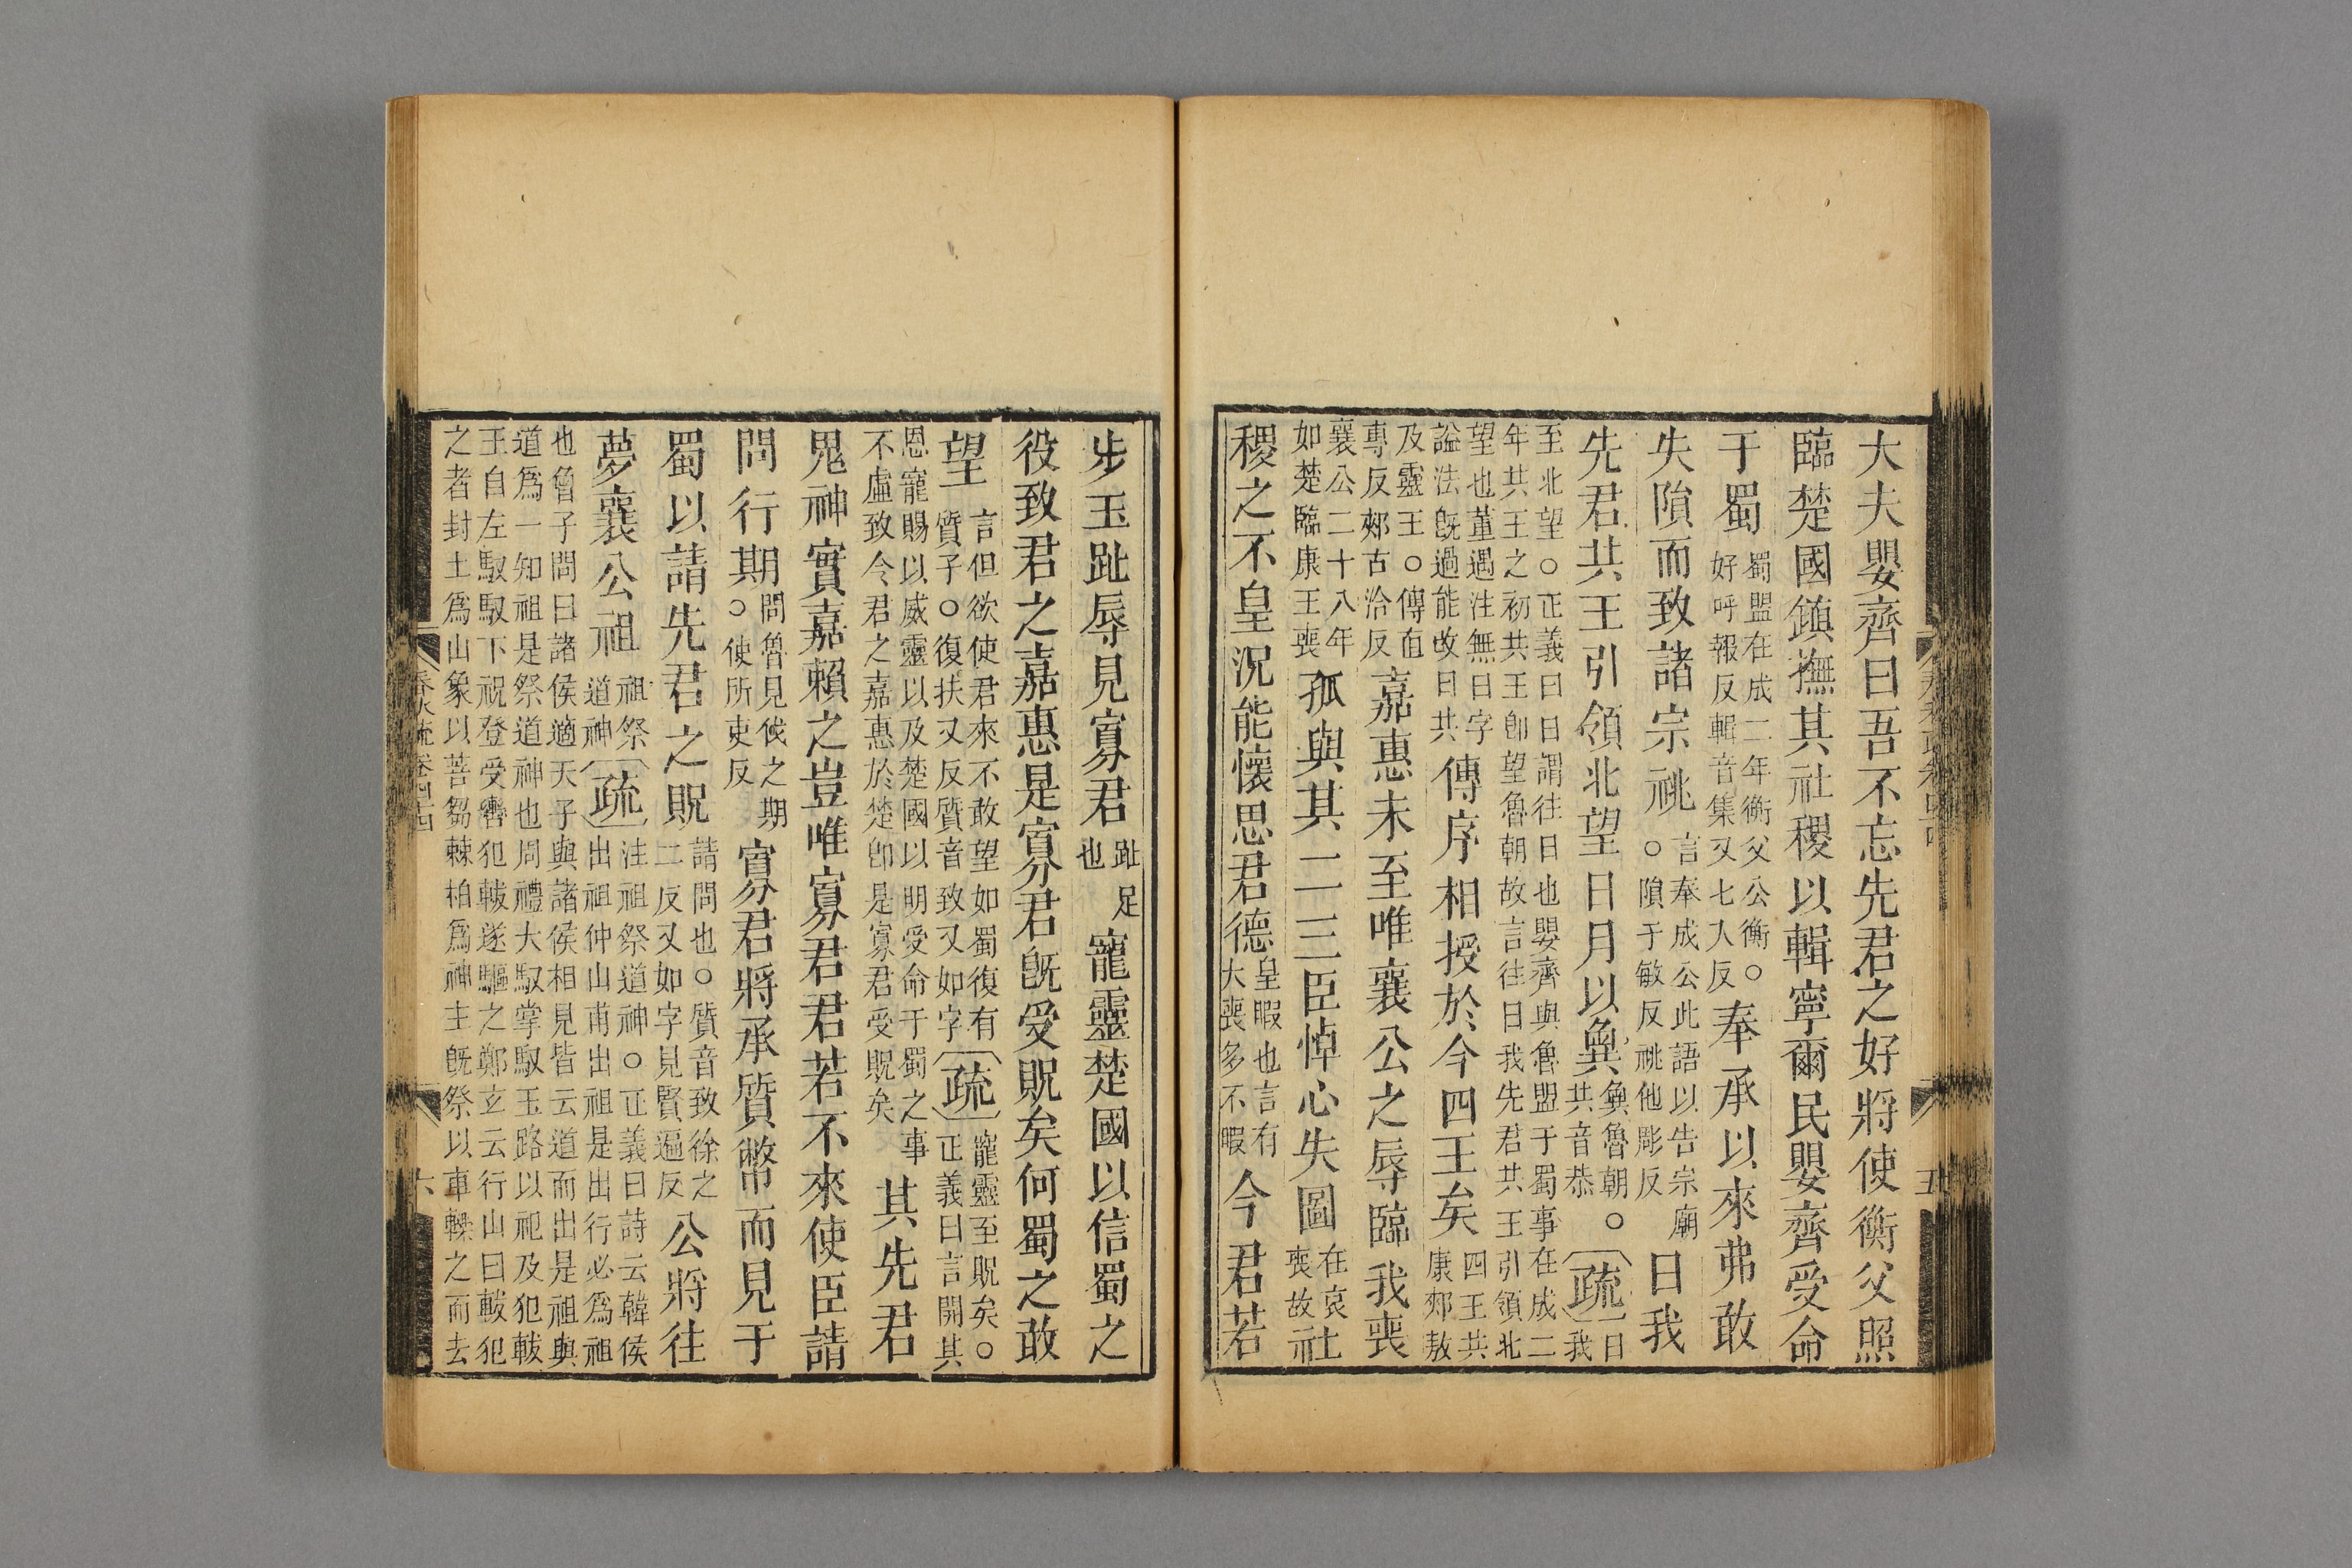 大夫嬰齊曰吾不忘先君之好將使衡父照
臨楚國鎮撫其社稷以輯寧爾民嬰齊受命
于蜀
蜀盟在成二年衡父公衡○
好呼報反輯音集又七入反
奉承以來弗敢
失隕而致諸宗祧
言奉成公此語以告宗廟
○隕于敏反祧他彫反
日我
先君共王引領北望日月以兾
兾魯朝○
共音恭
疏
日
我
至北望○正義曰日謂往日也嬰齊與魯盟于蜀事在成二
年共王之初共王卽望魯朝故言往日我先君共王引領北
望也董遇注無日字
謚法旣過能改曰共
傳序相授於今四王矣
四王共
康郟敖
及靈王○傳直
專反郟古洽反
嘉惠未至唯襄公之辱臨我喪
襄公二十八年
如楚臨康王喪
孤與其二三臣悼心失圖
在哀
喪故
社
稷之不皇況能懷思君德
皇暇也言有
大喪多不暇
今君若
步玉趾辱見寡君
趾足
也
寵靈楚國以信蜀之
役致君之嘉惠是寡君旣受貺矣何蜀之敢
望
言但欲使君來不敢望如蜀復有
質子○復扶又反質音致又如字
疏
寵靈至貺矣○
正義曰言開其
恩寵賜以威靈以及楚國以明受命于蜀之事
不虛致今君之嘉惠於楚卽是寡君受貺矣
其先君
鬼神實嘉賴之豈唯寡君君若不來使臣請
問行期
問魯見伐之期
○使所吏反
寡君將承質幣而見于
蜀以請先君之貺
請問也○質音致徐之
二反又如字見賢遍反
公將往
夢襄公祖
祖祭
道神
疏
注祖祭道神○正義曰詩云韓侯
出祖仲山甫出祖是出行必爲祖
也曾子問曰諸侯適天子與諸侯相見皆云道而出是祖與
道爲一知祖是祭道神也周禮大馭掌馭玉路以祀及犯軷
王自左馭馭下祝登受轡犯軷遂驅之鄭玄云行山曰軷犯
之者封土爲山象以菩芻棘柏爲神主旣祭以車轢之而去
六
五